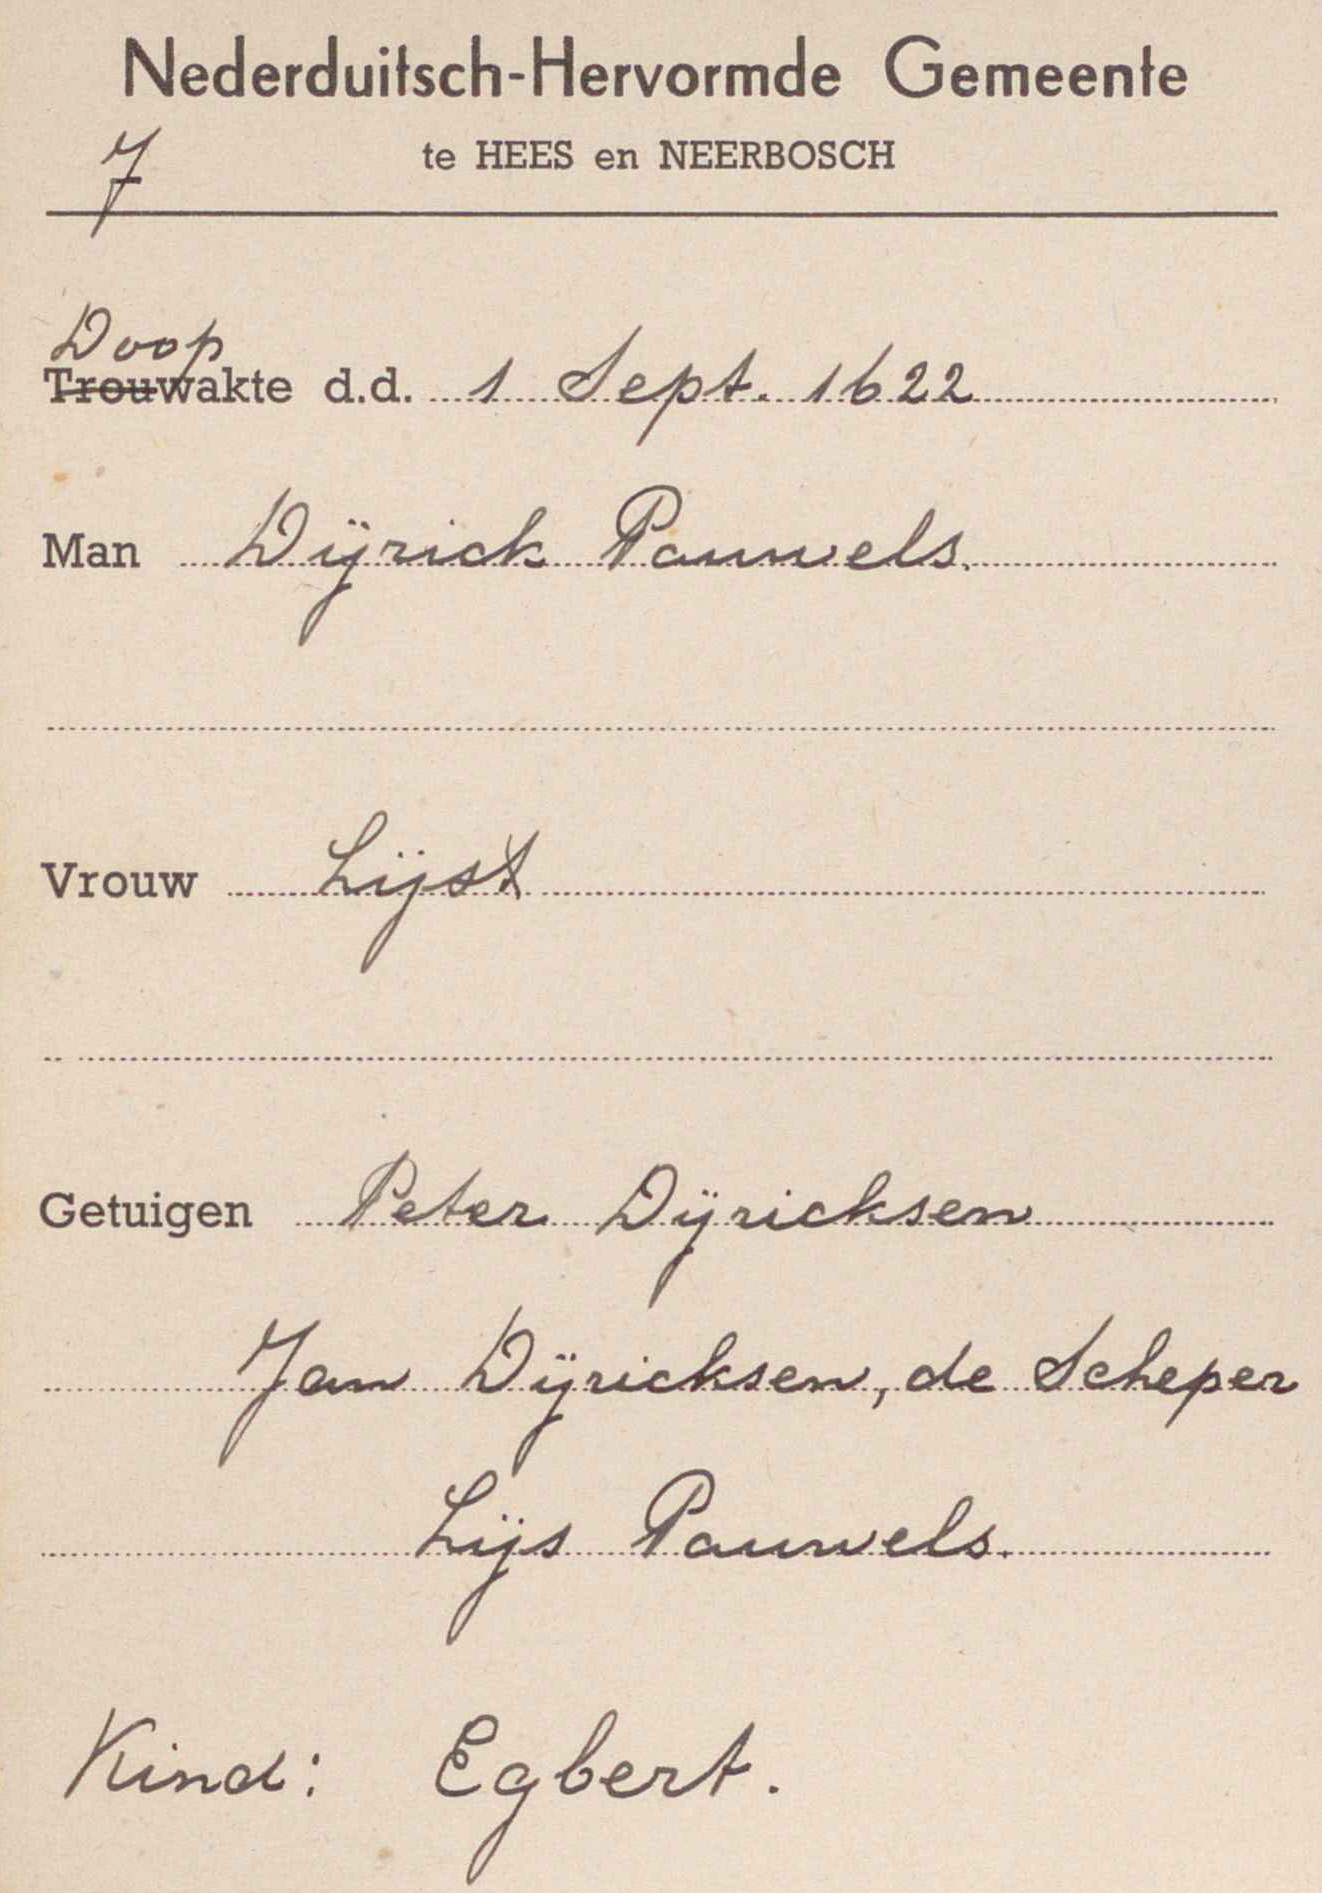 Nederduitsch-Hervormde Gemeente
te HEES en NEERBOSCH
7
Doop
Trouwakte d.d. 1 Sept. 1622
Man Dÿrick Pauwels.
Vrouw Lÿst
Getuigen Peter Dÿricksen
Jan Dÿricksen, de Scheper
Lÿs Pauwels.
Kind: Egbert.